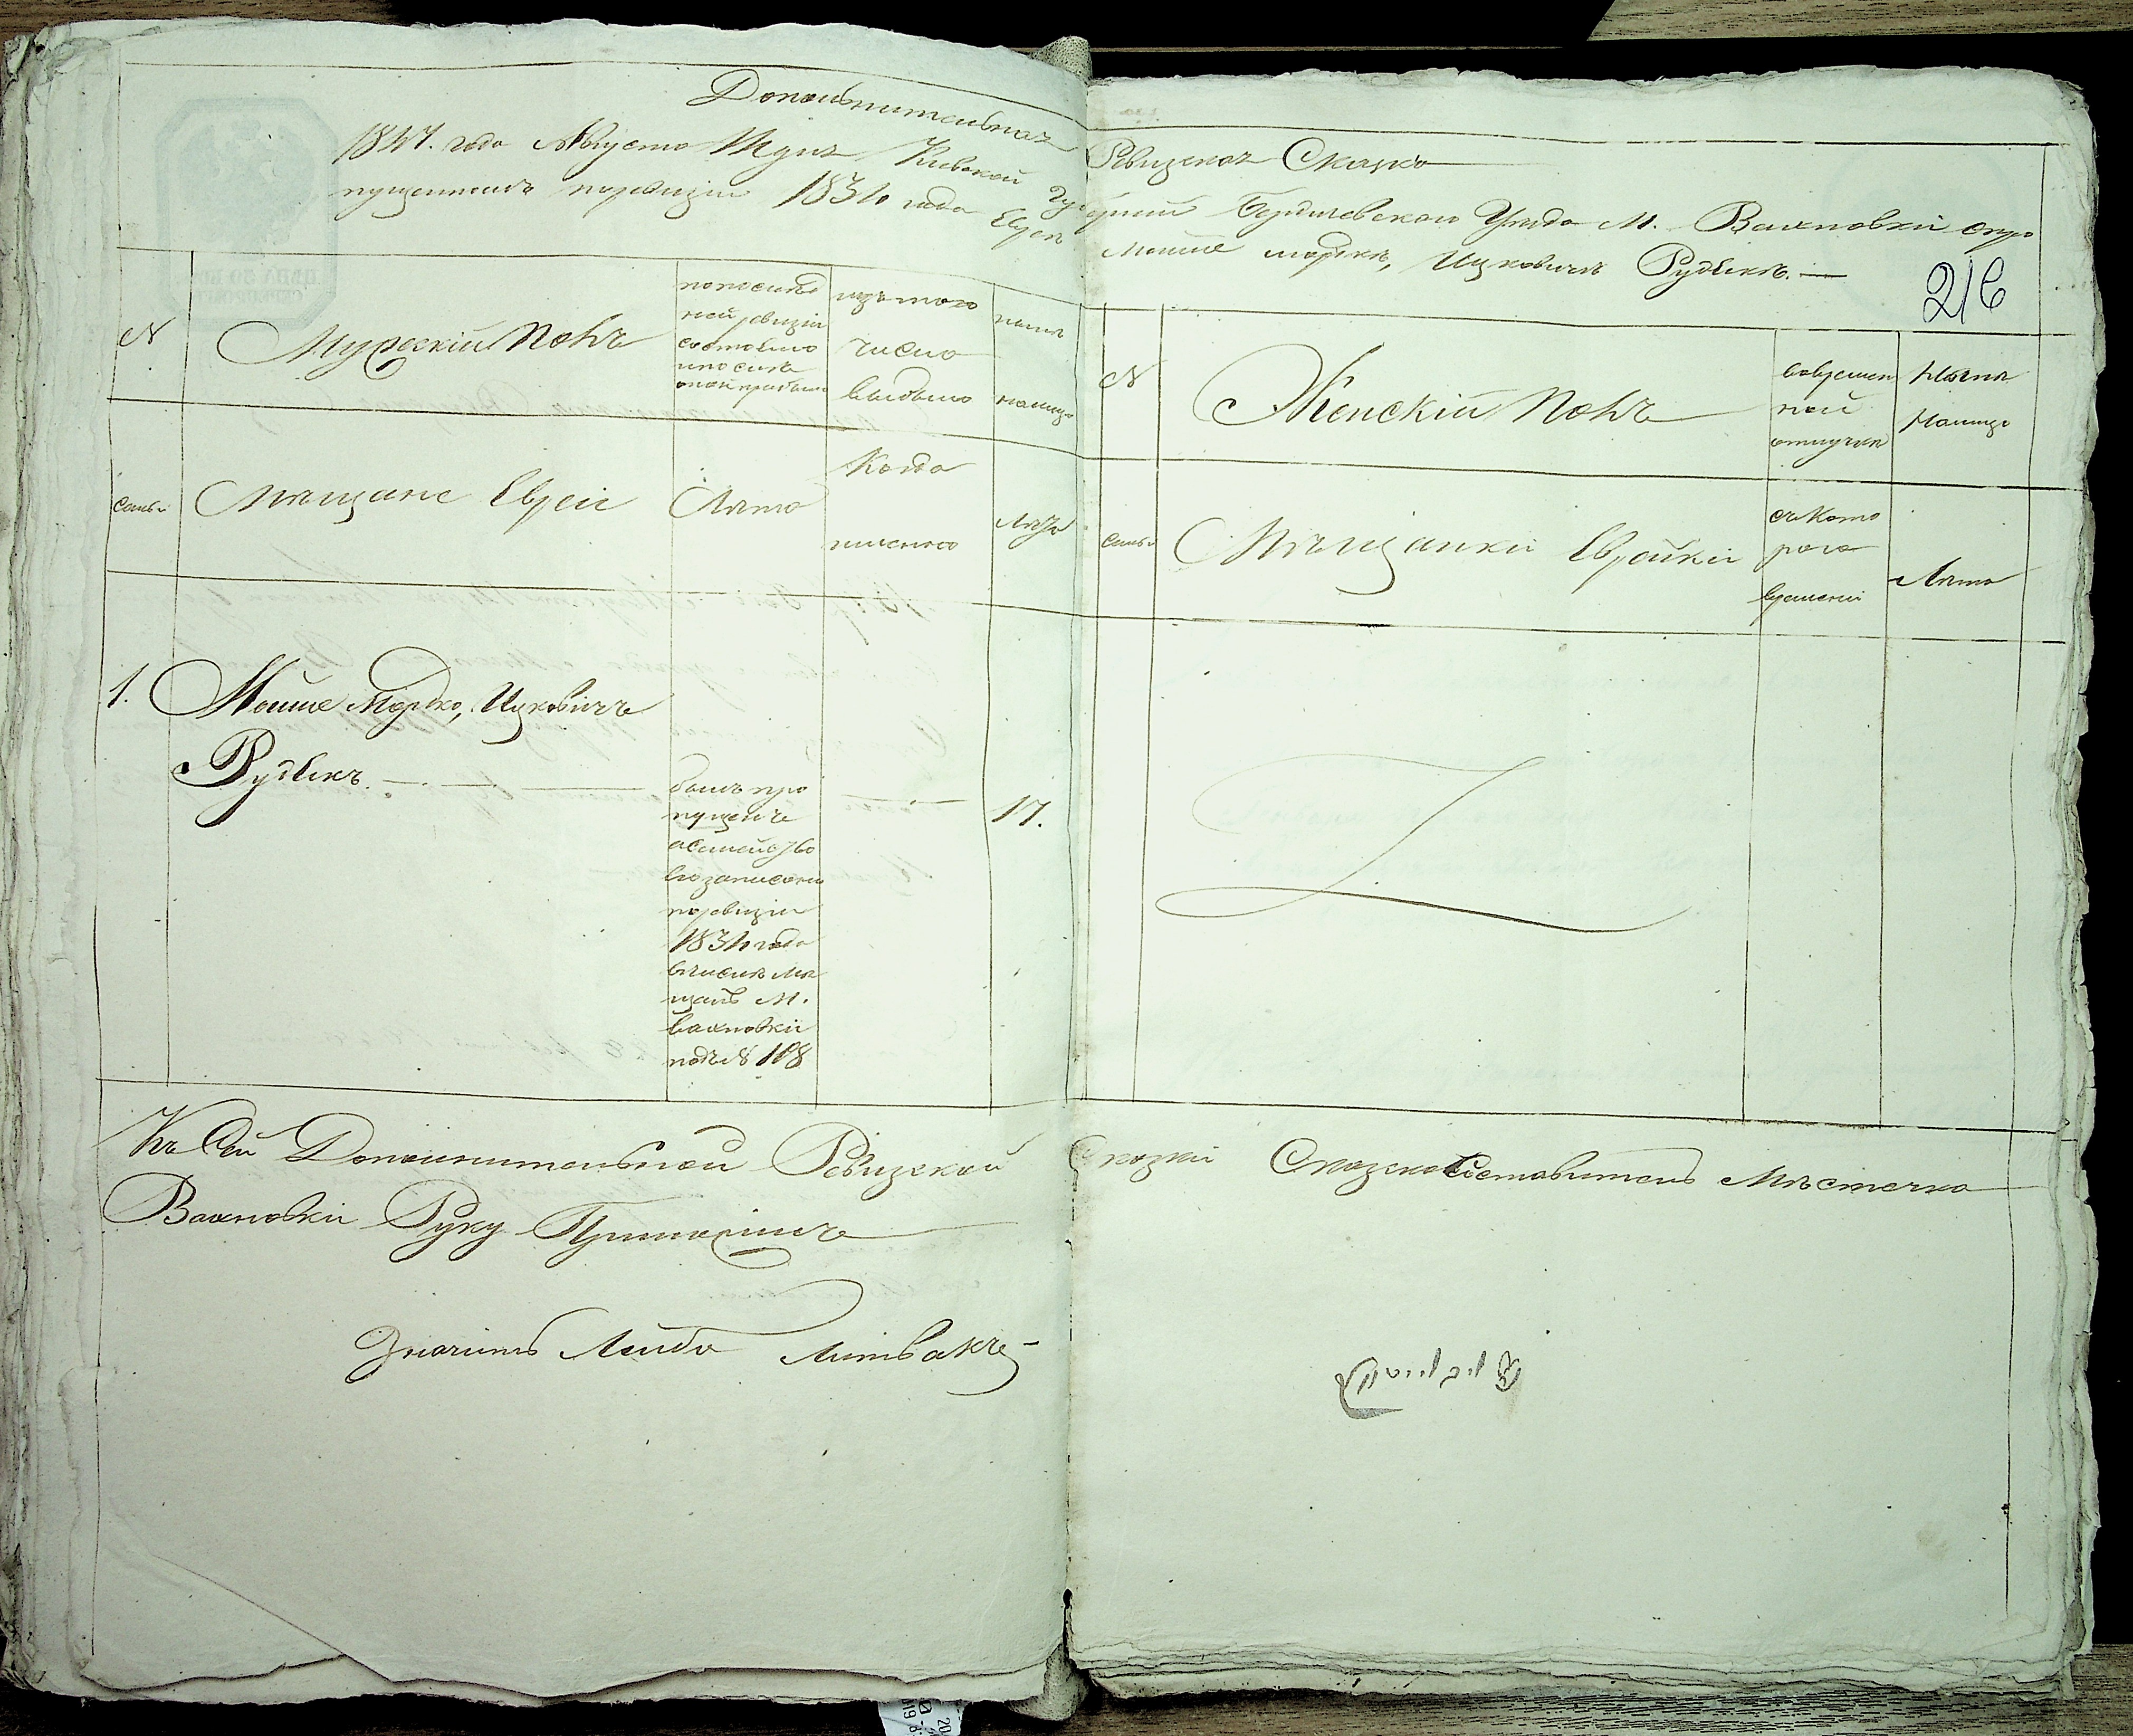 Дополнительная Ревизская Сказка
1847. года Августа дня Киевской Губерний Бердичевского Уезда М. Вахновки о про
пущенномъ поревизии 1834 года Еврее Мошке мордке, Ицковиче Рудыке. —
216
№
Мужескій Полъ
попослед
ней ревизіи
состояло
и после
оной прибыло
изъ того
числа
выбыло
ныне
налицо
№
Женскій Полъ
вовремен
ной
отлучке
Ныне
Налицо
семьи
Мещане Евреи
Лета
Когда
именно
Лета
семьи
Мещанки Еврейки
съ кото
рого
времени
Лета
1.
Мошко Мордко, Ицковичъ
Рудыкъ.
былъ про
пущенъ
а семейство
его записано
поревизіи
1834 года
вчисле ме
щанъ М.
Вахновки
подъ № 118
17.
Къ Сей Дополнительной Ревизской Сказки Сказкосоставитель Местечка
Вахновки Руку Приложилъ
Значитъ Лейба Литвакъ